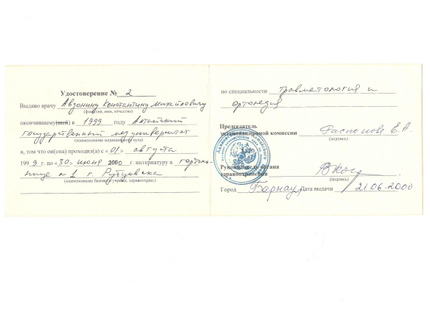 Удостоверение № 2
Выдано врачу Авзонину Константину Михайловичу
(фамилия, имя, отчество)
окончившему(шей) в 1999 году Алтайский
государственный медуниверситет
в том, что он(она) проходил(а) с «01» августа
1999 г. по «30» июня 2000 г. интернатуру в городской больнице
№ 1 г. Рубцовска
по специальности травматология и
ортопедия
Председатель
экзаменационной комиссии
(подпись)
Руководитель органа
здравоохранения
(подпись)
Город Барнаул Дата выдачи 21.06.2000